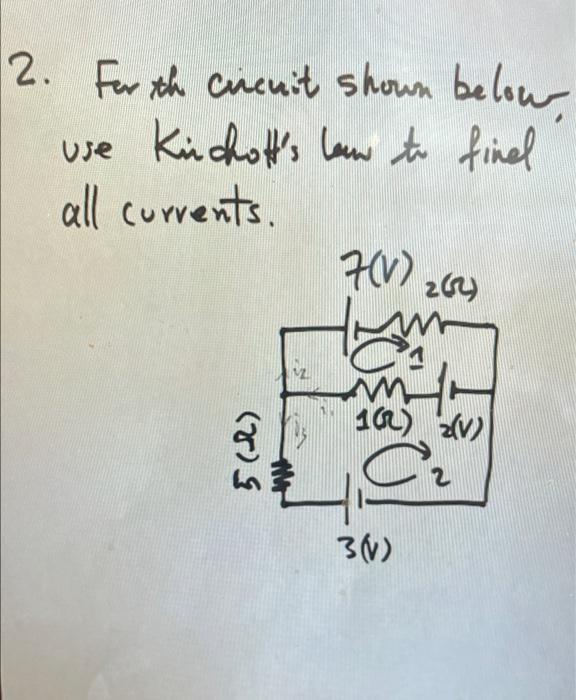 2. For th circuit shown below,
use Kirchoff's law to find
all currents.
7(V) 2(Ω)
1
i2
i1
1(Ω) 2(V)
i3
5(Ω)
2
3(V)